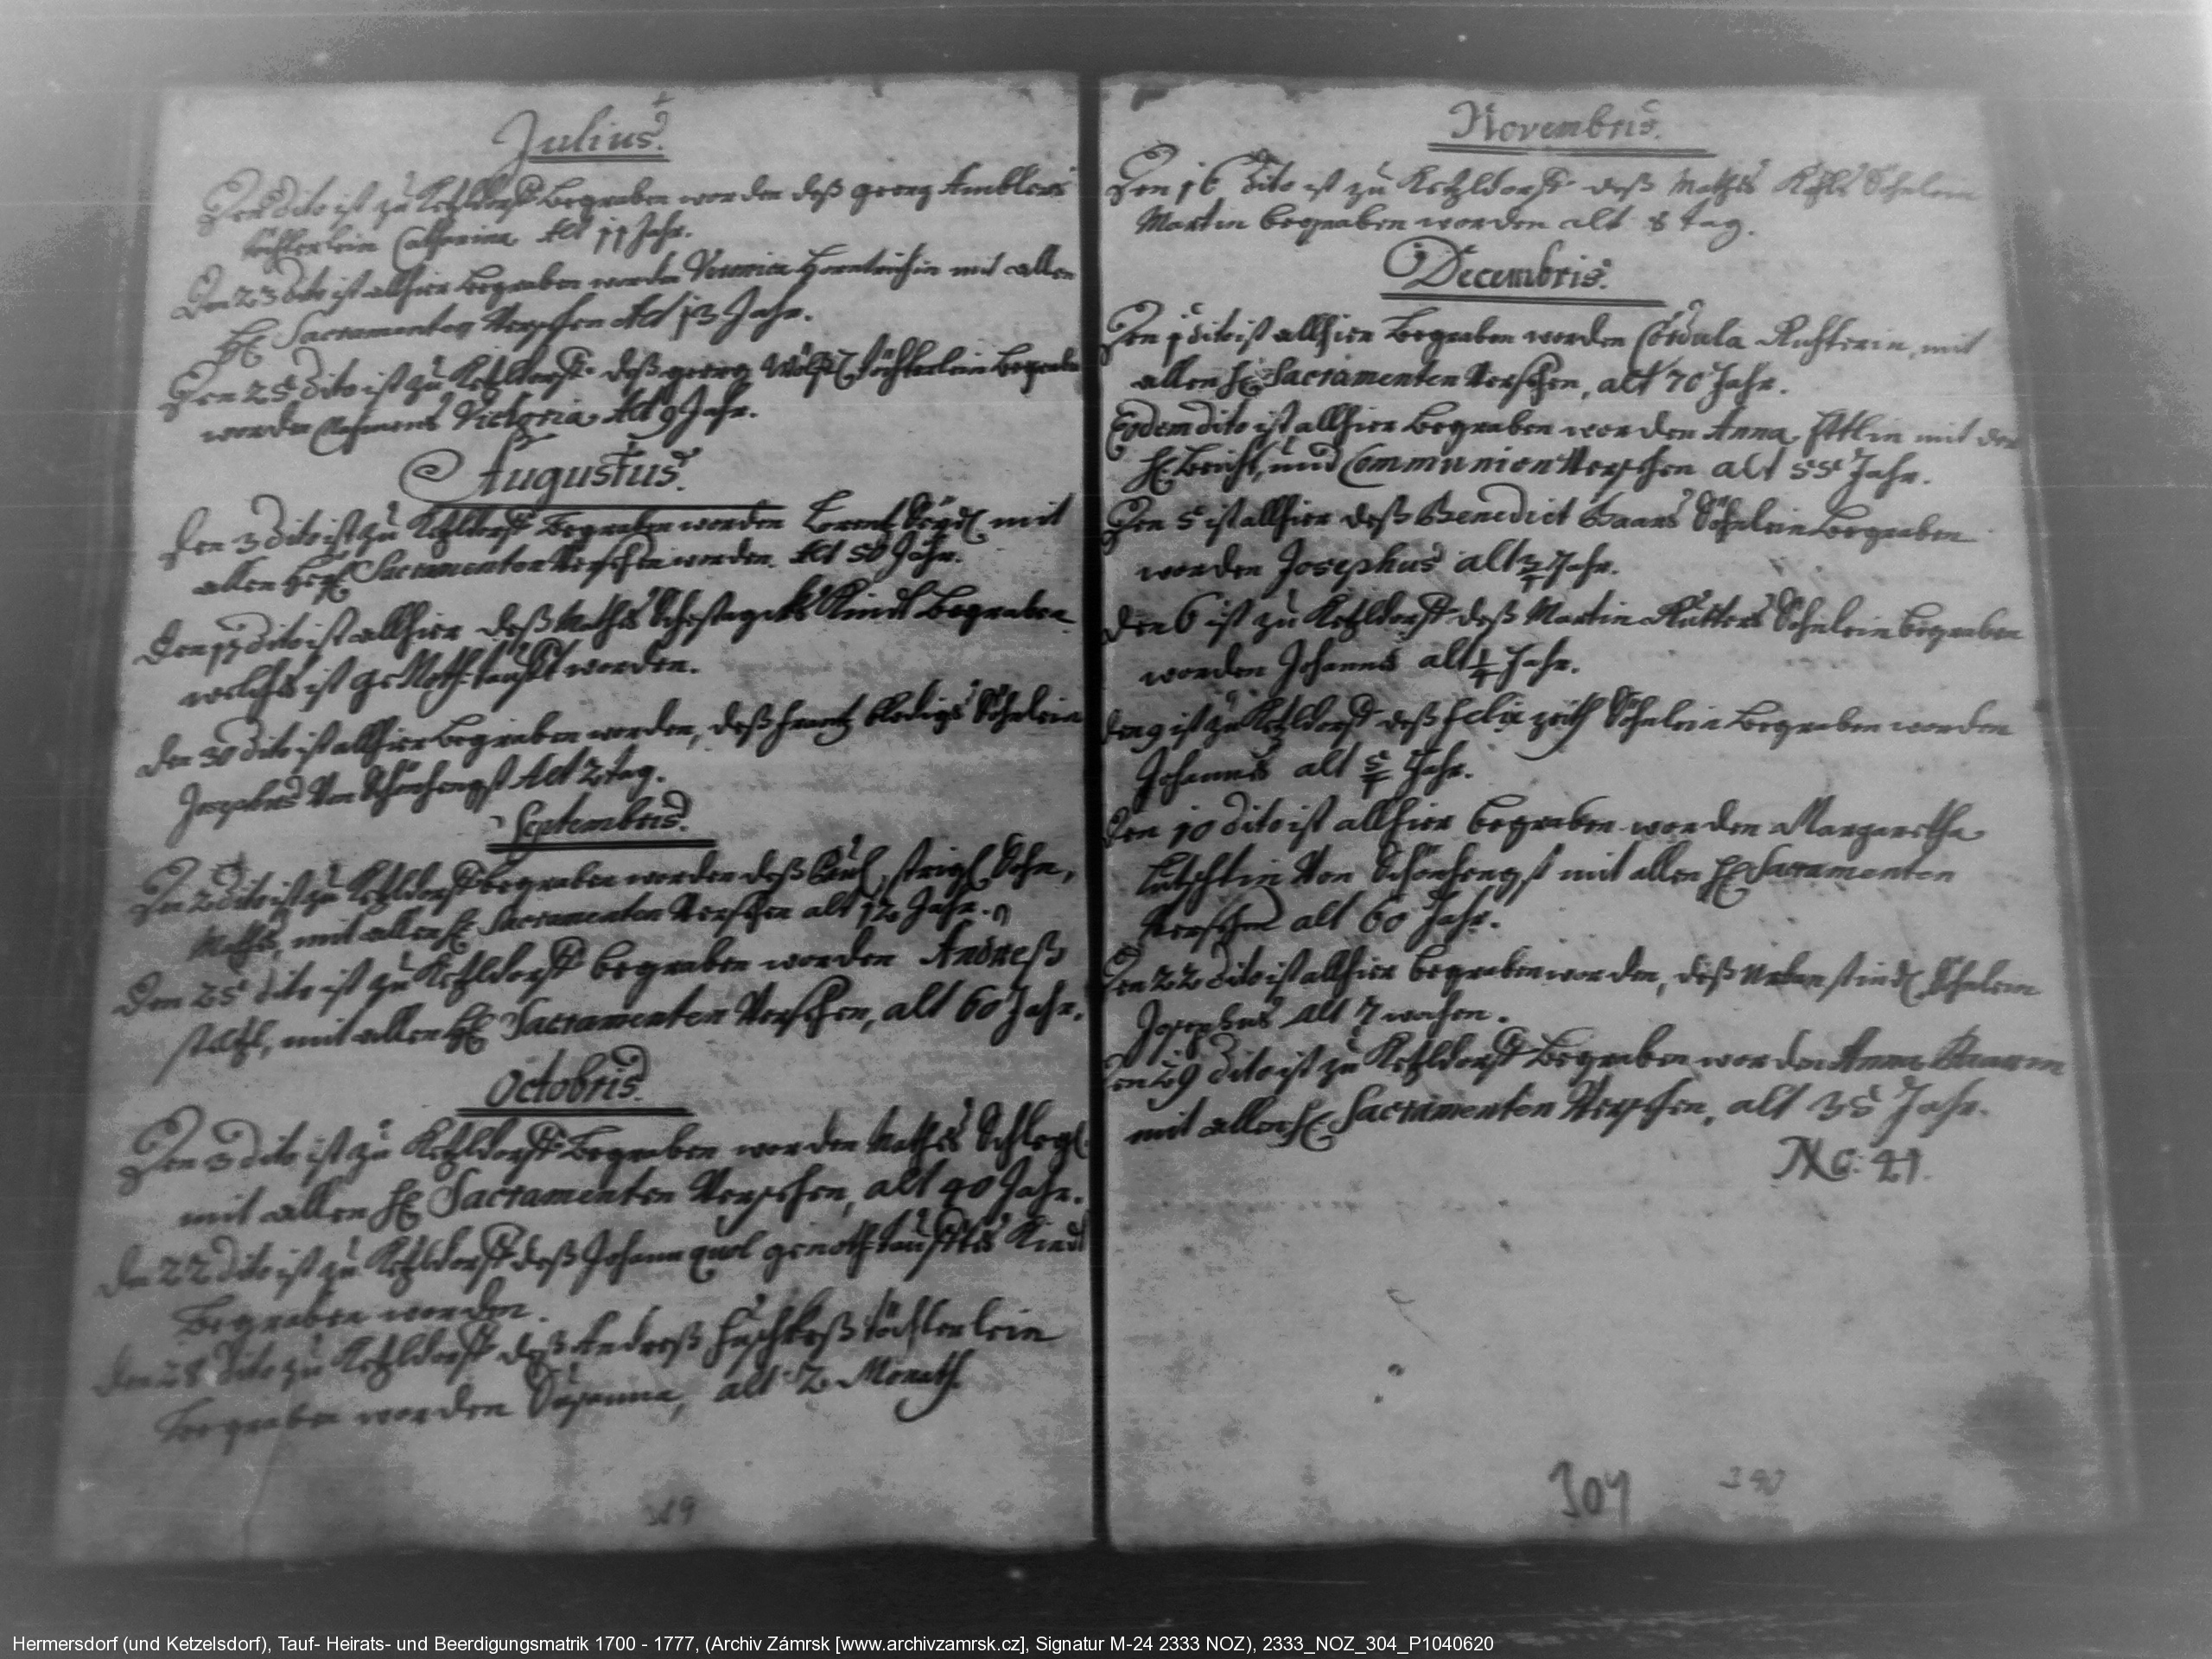 Julius.
Den dito ist zu Ketzldorff begraben worden deß georg Amblers
töchterlein Catharina Alt 11 Jahr.
Den 23 dito ist allhier begraben worden mit allen
Hℓ Sacramenten Versehen Alt 13 Jahr.
Den 25 dito ist zu Ketzldorff deß georg töchterlein begraben
worden Nahmens Victoria Alt 9 Jahr.
Augustus.
Den 3 dito ist zu Ketzldorff begraben worden Lorentz mit
allen Sacramenten Versehen worden. Alt 50 Jahr.
Den 17 dito ist allhier deß Mathes Kindt begraben
welches ist worden.
Den 30 dito ist allhier begraben worden, deß Frantz Söhnlein
Von Schönhengst Alt 2 tag.
Septembris.
Den 2 dito ist zu Ketzldorff begraben worden deß Sohn,
Mathes, mit allen Hℓ Sacramenten Versehen alt 12 Jahr.
Den 25 dito ist zu Ketzldorff begraben worden Andreß
mit allen Hℓ Sacramenten Versehen, alt 60 Jahr.
Octobris.
Den 3 dito ist zu Ketzldorff begraben worden Mathes Schlegl
mit allen Hℓ Sacramenten Versehen, alt 40 Jahr.
Den 22 dito ist zu Ketzldorff deß Johann genothtaufftes Kindt
begraben worden.
Den 28 dito zu Ketzldorff deß Andreß töchterlein
begraben worden Susanna, alt 2 Monath.
389
Novembris.
Den 16 dito ist zu Ketzldorff deß Mathes Söhnlein
Martin begraben worden alt 8 tag.
Decembris.
Den 1 dito ist allhier begraben worden Cordula Richterin, mit
allen Hℓ Sacramenten Versehen, alt 70 Jahr.
Eodem dito ist allhier begraben worden Anna mit der
Hℓ Beicht, und Communion Versehen alt 55 Jahr.
Den 5 ist allhier deß Benedict Haars Söhnlein begraben
worden Josephus alt Jahr.
Den 6 ist zu Ketzldorff deß Martin Söhnlein begraben
worden Johannes alt Jahr.
Den 9 ist zu Ketzldorff deß Felix Söhnlein begraben worden
Johannes alt Jahr.
Den 10 dito ist allhier begraben worden Margaretha
Von Schönhengst mit allen Hℓ Sacramenten
Versehen alt 60 Jahr.
Den 22 dito ist allhier begraben worden, deß Söhnlein
Josephus Alt 7 wochen.
Den 29 dito ist zu Ketzldorff begraben worden Anna
mit allen Hℓ Sacramenten Versehen, alt 35 Jahr.
No: 21.
304 390
Hermersdorf (und Ketzelsdorf), Tauf- Heirats- und Beerdigungsmatrik 1700 - 1777, (Archiv Zámrsk [www.archivzamrsk.cz], Signatur M-24 2333 NOZ), 2333_NOZ_304_P1040620